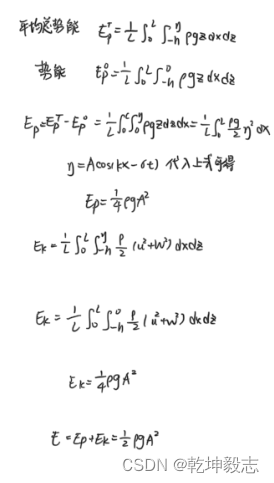 平均总势能 E_p^T = 1/L ∫_0^L ∫_{-h}^η ρgz dxdz
势能 E_p^0 = 1/L ∫_0^L ∫_{-h}^0 ρgz dxdz
E_p = E_p^T - E_p^0 = 1/L ∫_0^L ∫_0^η ρgz dzdx = 1/L ∫_0^L ρg/2 η² dx
η = A cos(kx - σt) 代入上式可得
E_p = 1/4 ρgA²
E_k = 1/L ∫_0^L ∫_{-h}^η ρ/2 (u² + w²) dxdz
E_k = 1/L ∫_0^L ∫_{-h}^0 ρ/2 (u² + w²) dxdz
E_k = 1/4 ρgA²
E = E_p + E_k = 1/2 ρgA²
CSDN @乾坤毅志